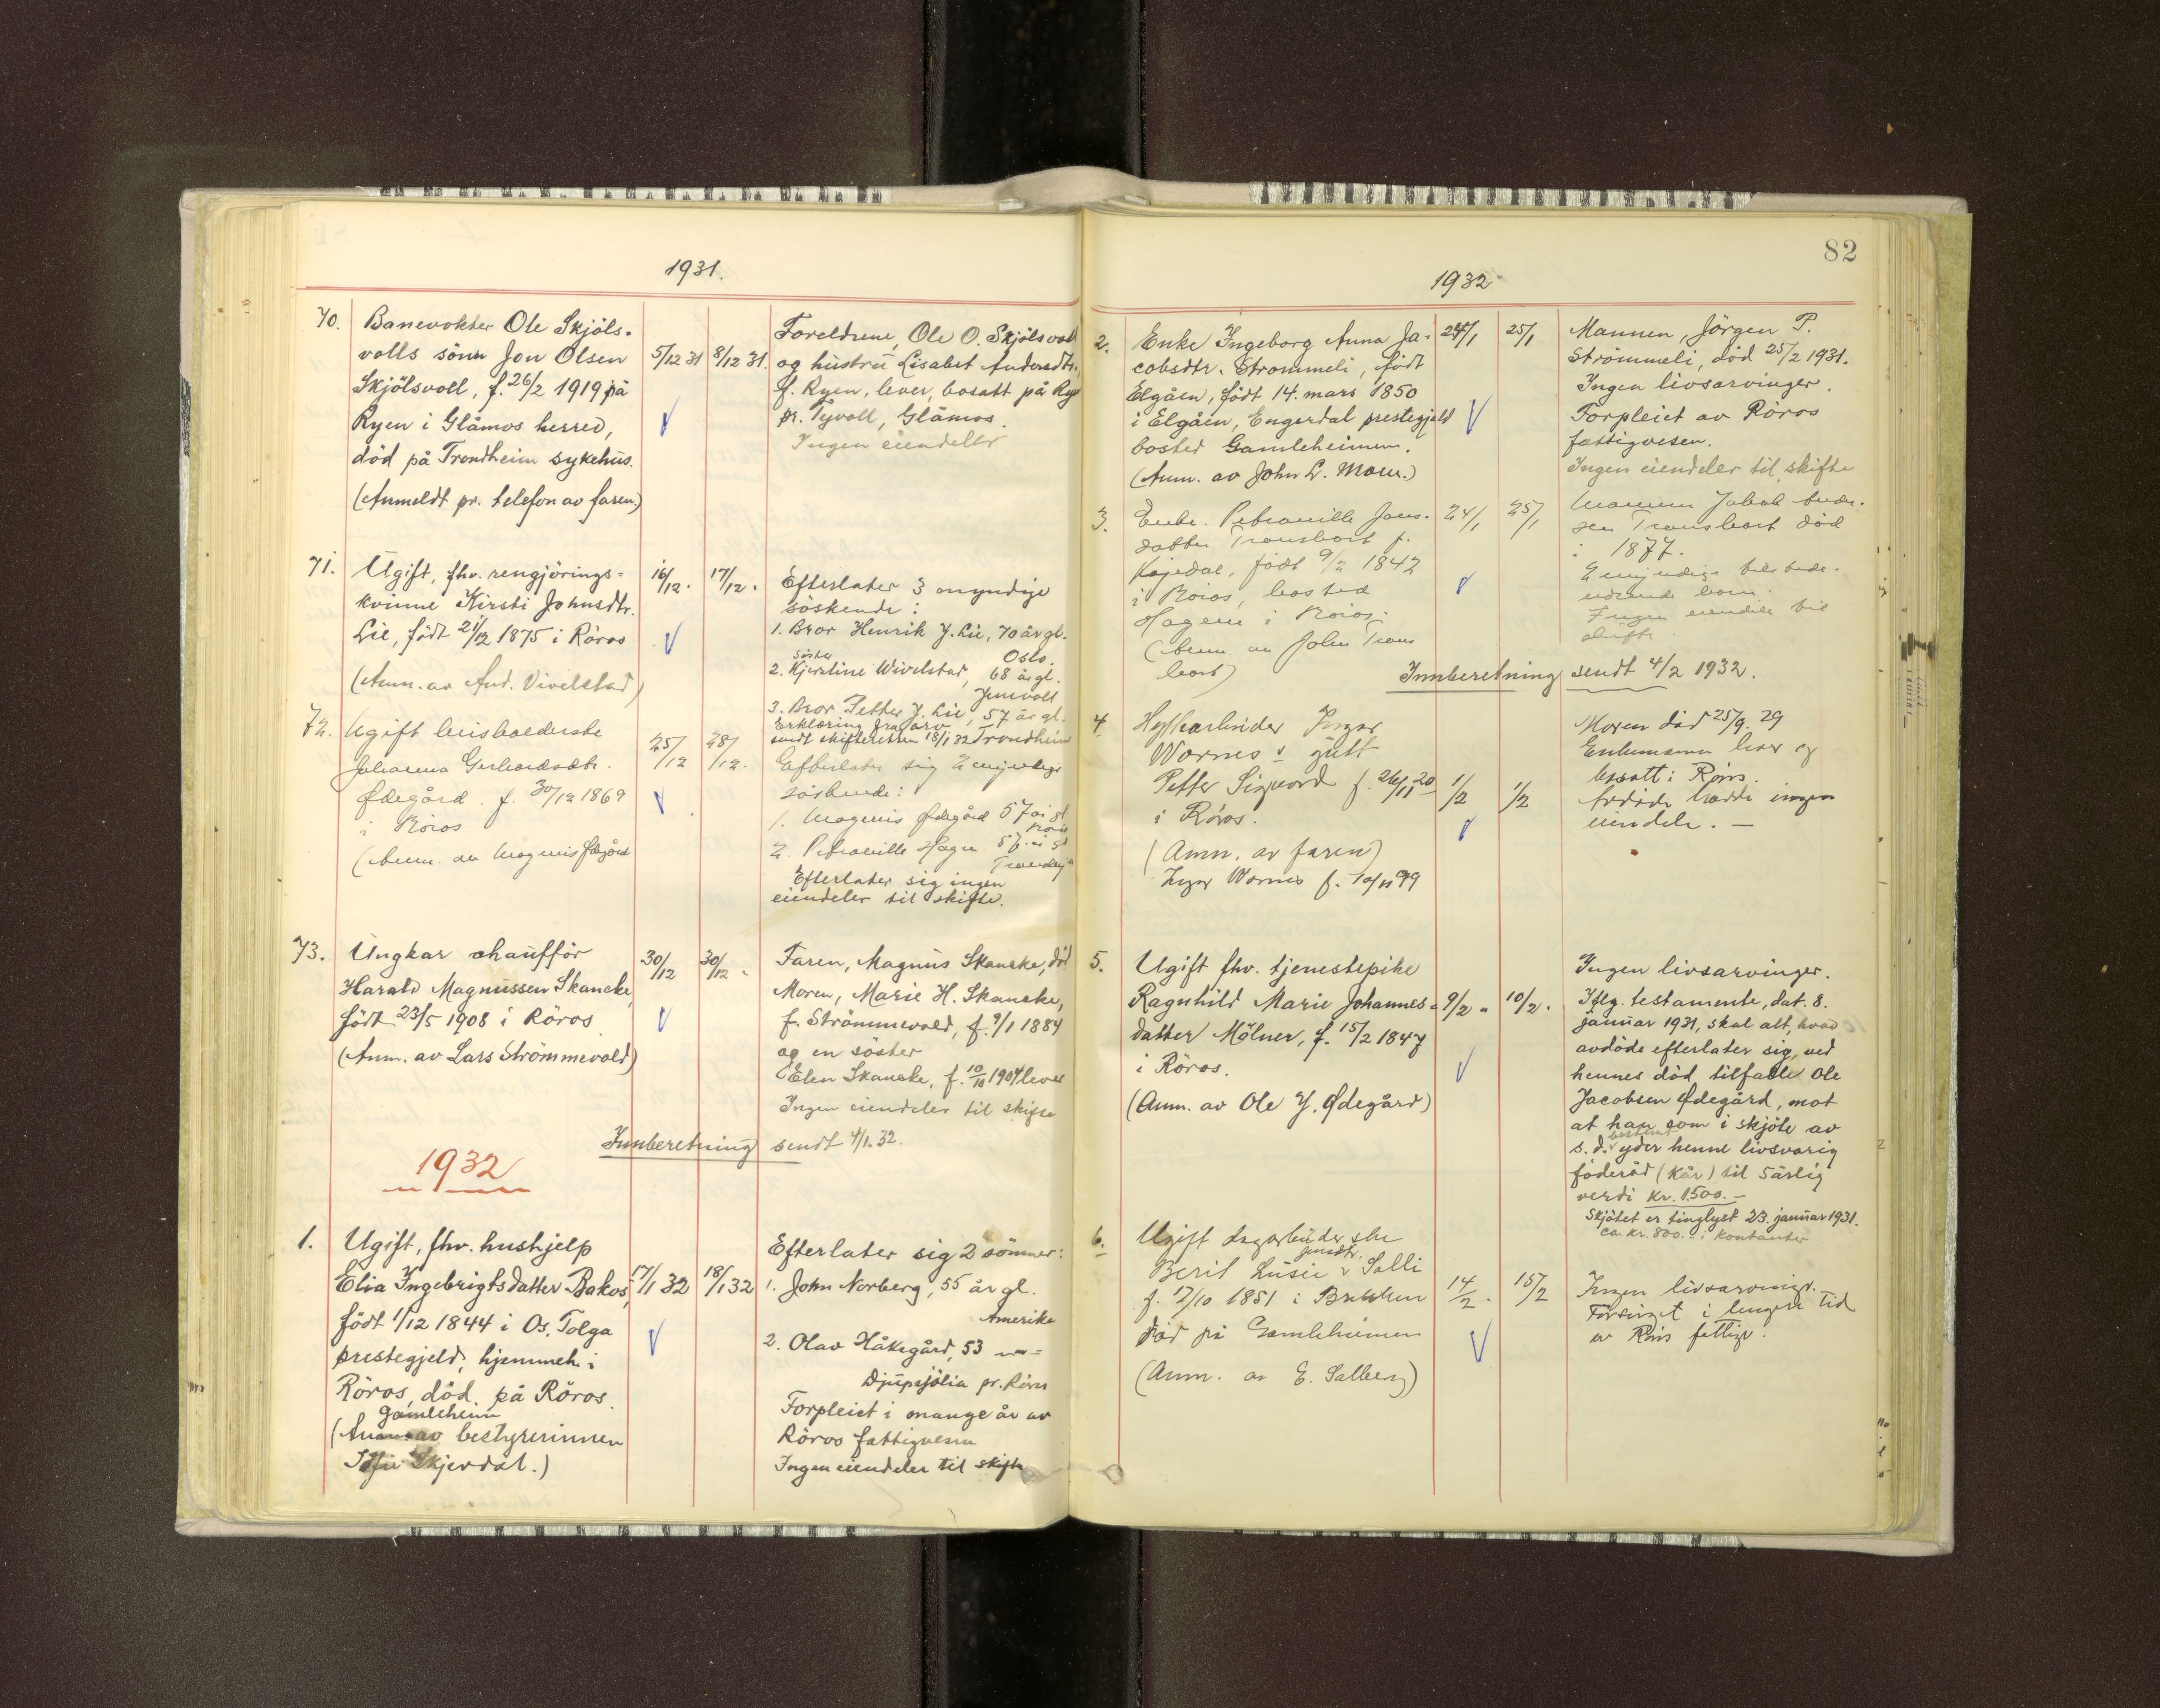 1931.
70. Banevokter Ole Skjöls-
volls sönn Jon Olsen
Skjölsvoll, f. 26/2 1919 på
Ryen i Glåmos herred,
död på Trondheim sykehus.
(Anmeldt pr. telefon av faren)
5/12 31
8/12 31.
Foreldrene, Ole O. Skjölsvoll
og hustru Lisabet Andersdtr.
f. Ryen, lever, bosatt på Rye
pr. Tyvoll, Glåmos.
Ingen eiendeler
71. Ugift, fhv. rengjörings-
kvinne Kirsti Johnsdtr.
Lie, født 21/12 1875 i Röros
(Anm. av And. Vivelstad)
16/12.
17/12.
Efterlater 3 myndige
söskende:
1. Bror Henrik J. Lie, 70 år gl.
Oslo.
söster
2. Kjerstine Wivelstad, 68 år gl.
3. Bror Petter J. Lie, 57 år gl.
Erklæring fra arv.
sendt skifteretten 18/1 32 Trondheim
72. Ugift husholderske
Johanna Gerhardsdtr.
Ødegård. f. 30/12 1869
i Röros
(Anm. av Magnus Ødegård
25/12
28/12.
Efterlater sig 2 myndige
söskende:
1. Magnus Ødegård 57 år gl
Röros
2. Petronille Hagen
Efterlater sig ingen
eiendeler til skifte.
73. Ungkar chaufför
Harald Magnussen Skancke,
född 23/5 1908 i Röros
(Anm. av Lars Strömmevold)
30/12
30/12.
Faren, Magnus Skancke, död
Moren, Marie H. Skancke,
f. Strömmevold, f. 9/1 1884
og en söster
Elen Skancke, f. 10/10 1904 lever
Ingen eiendeler til skifte
Innberetning sendt 4/1. 32.
1932
1. Ugift, fhv. hushjelp
Elia Ingebrigtsdatter Bakos,
født 1/12 1844 i Os, Tolga
prestegjeld, hjemmeh. i
Röros, död på Röros
Gamleheim
(Anm. av bestyrerinnen
Skjerdal.)
17/1 32
18/1 32
Efterlater sig 2 sönner:
1. John Norberg, 55 år gl.
Amerika
2. Olav Håkegård, 53 —"—
Djupsjölia pr. Röros
Forpleiet i mange år av
Röros fattigvesen
Ingen eiendeler til skifte
82
1932
2. Enke Ingeborg Anna Ja-
cobsdtr. Strømmeli, født
Elgåen, født 14. mars 1850
i Elgåen, Engerdal prestegjeld
bosted Gamleheimen.
(Anm. av John L. Moen.)
24/1
25/1
Mannen, Jörgen P.
Strömmeli, död 25/2 1931.
Ingen livsarvinger.
Forpleiet av Röros
fattigvesen.
Ingen eiendeler til skifte
3. Enke. Petronille Jons-
datter Transbort f.
født 9/2 1842
i Röros, bosted
Hagene i Röros.
(Anm. av John Trans
bort)
24/1
25/1
Mannen Jakob Ander-
sen Transbort död
i 1877.
2 myndige
barn.
Ingen eiendeler til
skifte
Innberetning sendt 4/2 1932.
4. Ingvar
Wornes's gutt
Petter Sigvard f. 26/11 20
i Röros.
(Anm. av faren)
Ingv Wornes f. 10/11 99
1/2
1/2
Moren död 25/9. 29
Enkemann lever og
bosatt i Röros.
Avdöde hadde ingen
eiendeler. —
5. Ugift fhv. tjenestepike
Ragnhild Marie Johannes-
datter Mölner, f. 15/2 1847
i Röros.
(Anm. av Ole J. Ødegård)
9/2 "
10/2.
Ingen livsarvinger.
Iflg. testamente, dat. 8.
januar 1931, skal alt, hvad
avdöde efterlater sig, ved
hennes död tilfalle Ole
Jacobsen Ødegård, mot
at han som i skjöte av
s. d. bestemt yder henne livsvarig
föderåd (kår) til 5 årlig
verdi kr. 1500.—
Skjötet er tinglyst 23. januar 1931.
ca. kr. 800.- i kontanter
6. Ugift dagarbeiderske
Berit Lusie Jensdtr. Salli
f. 17/10 1851 i Brekken
död på Gamleheimen
(Anm. av E. Salberg)
14/2.
15/2
Ingen livsarving.
Forsörget i lengere Tid
av Röros fattigv.